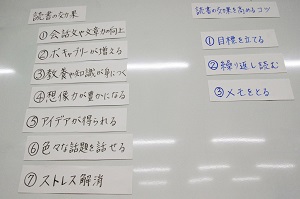 読書の効果
①会話文や文章力の向上
②ボキャブリーが増える
③教養や知識が身につく
④想像力が豊かになる
⑤アイデアが得られる
⑥色々な話題を話せる
⑦ストレス解消
読書の効果を高めるコツ
①目標を立てる
②繰り返し読む
③メモをとる